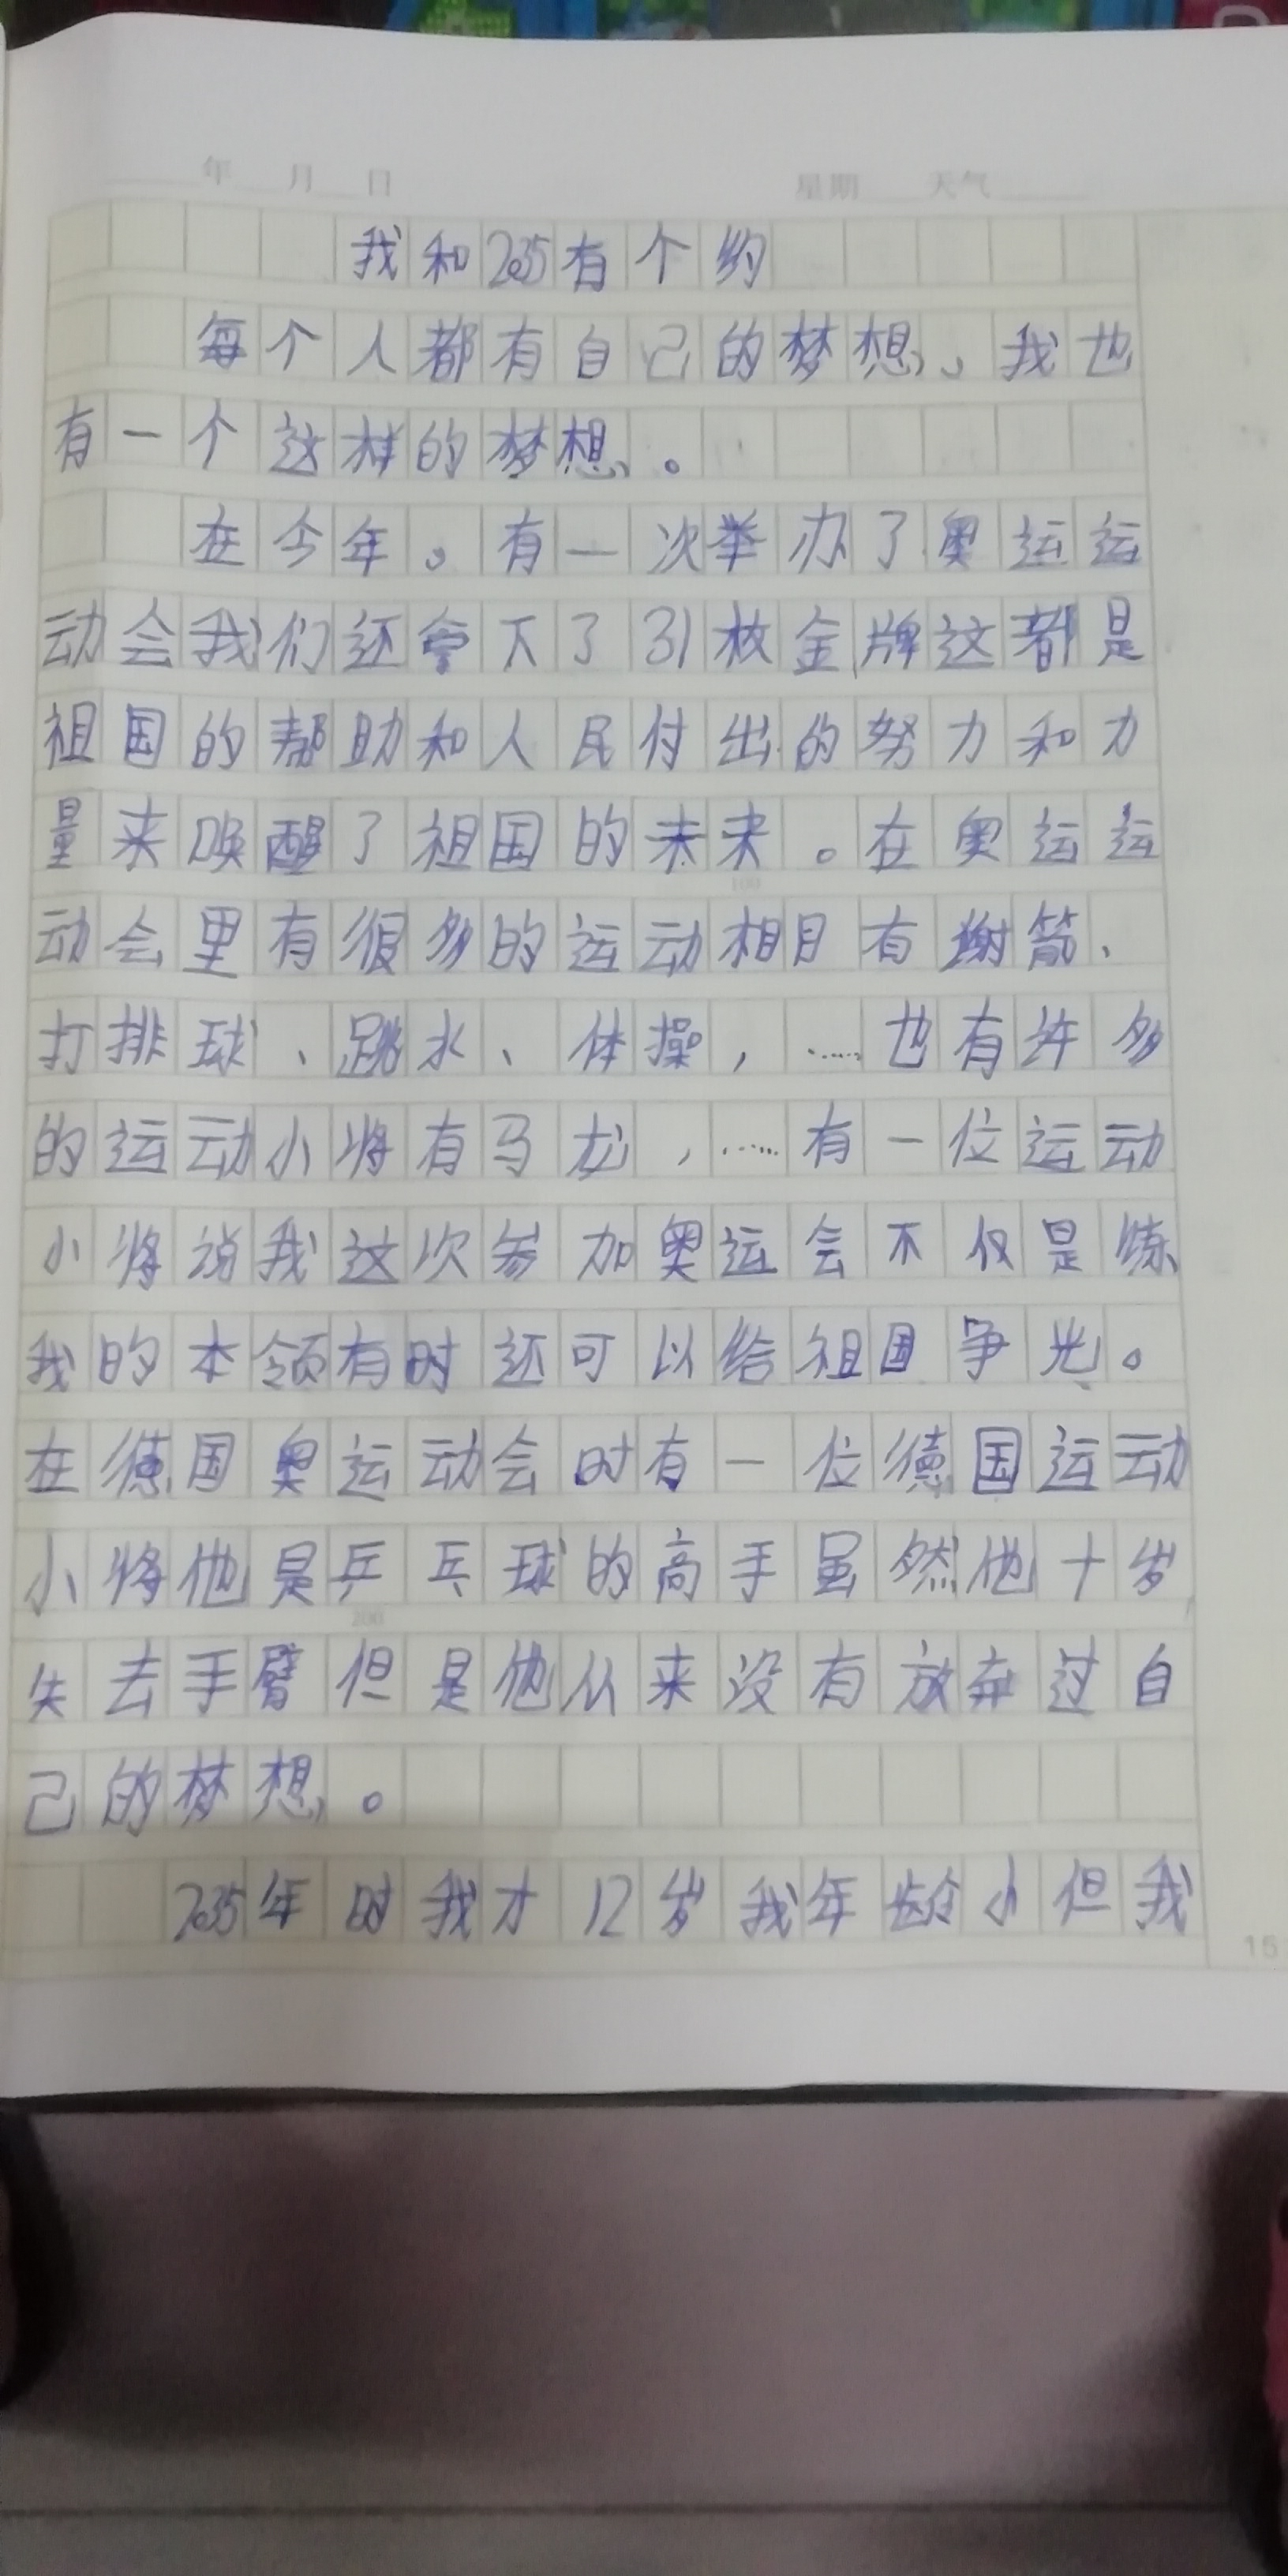 年 月 日 星期 天气
我和2035有个约
每个人都有自己的梦想、我也
有一个这样的梦想。
在今年。有一次举办了奥运运
动会我们还拿下了31枚金牌这都是
祖国的帮助和人民付出的努力和力
量来唤醒了祖国的未来。在奥运运
动会里有很多的运动相目有谢箭、
100
打排球、跳水、体操,……也有许多
的运动小将有马龙,……有一位运动
小将说我这次参加奥运会不仅是练
我的本领有时还可以给祖国争光。
在德国奥运动会时有一位德国运动
小将他是乒乓球的高手虽然他十岁
200
失去手臂但是他从来没有放弃过自
己的梦想。
2035年时我才12岁我年龄小但我
16